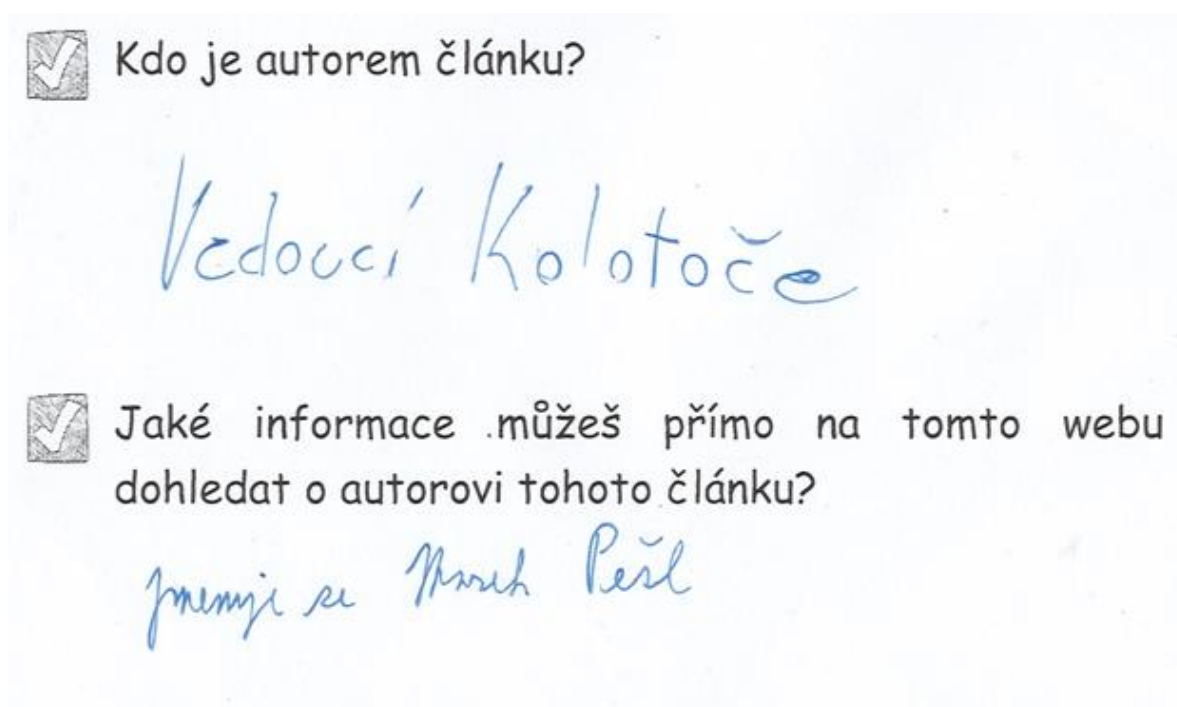 Kdo je autorem článku?
Vedoucí Kolotoče
Jaké informace můžeš přímo na tomto webu
dohledat o autorovi tohoto článku?
jmenuje se Marek Pešl